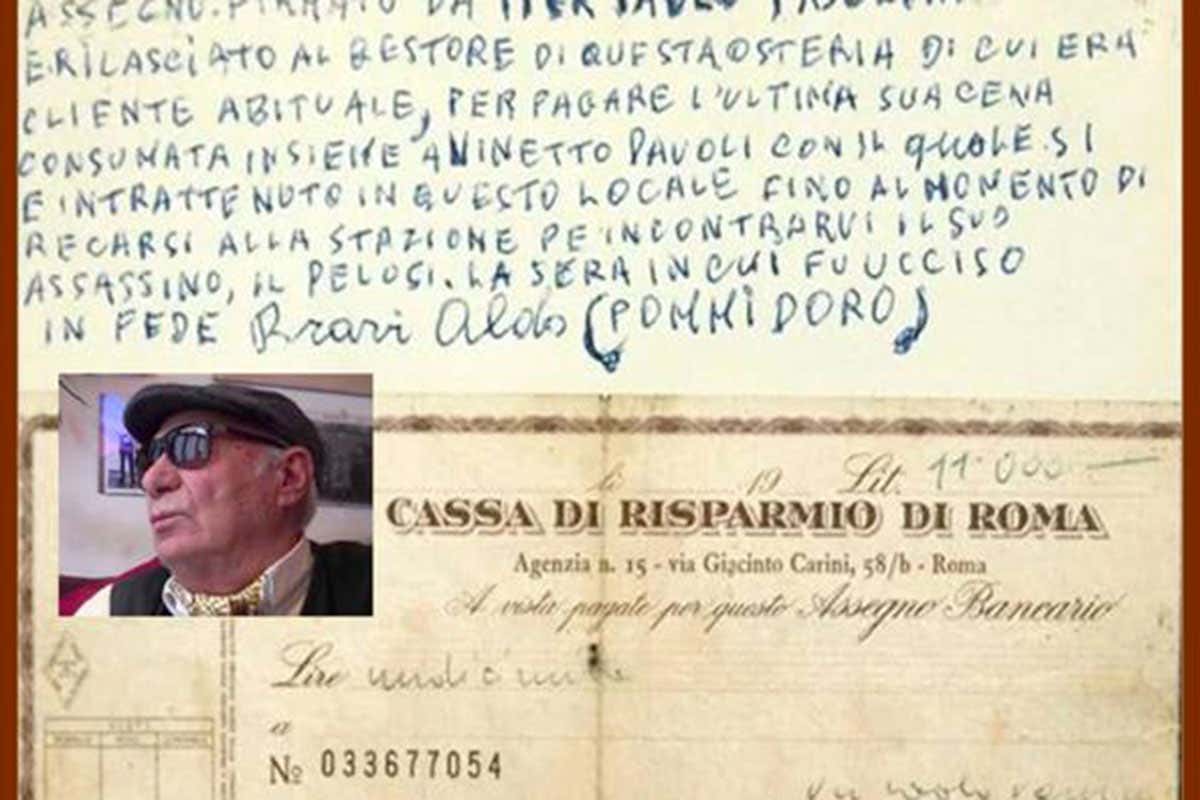 ASSEGNO. FIRMATO DA PIER PAOLO PASOLINI
E RILASCIATO AL GESTORE DI QUESTA OSTERIA DI CUI ERA
CLIENTE ABITUALE, PER PAGARE L'ULTIMA SUA CENA
CONSUMATA INSIEME A NINETTO DAVOLI CON IL QUALE SI
E INTRATTENUTO IN QUESTO LOCALE FINO AL MOMENTO DI
RECARSI ALLA STAZIONE PE INCONTRARVI IL SUO
ASSASSINO, IL PELOSI. LA SERA IN CUI FU UCCISO
IN FEDE Bravi Aldo (POMMIDORO)
li 19 Lit. 11.000
CASSA DI RISPARMIO DI ROMA
Agenzia n. 15 - via Giacinto Carini, 58/b - Roma
A vista pagate per questo Assegno Bancario
Lire undicimila
a
No 033677054